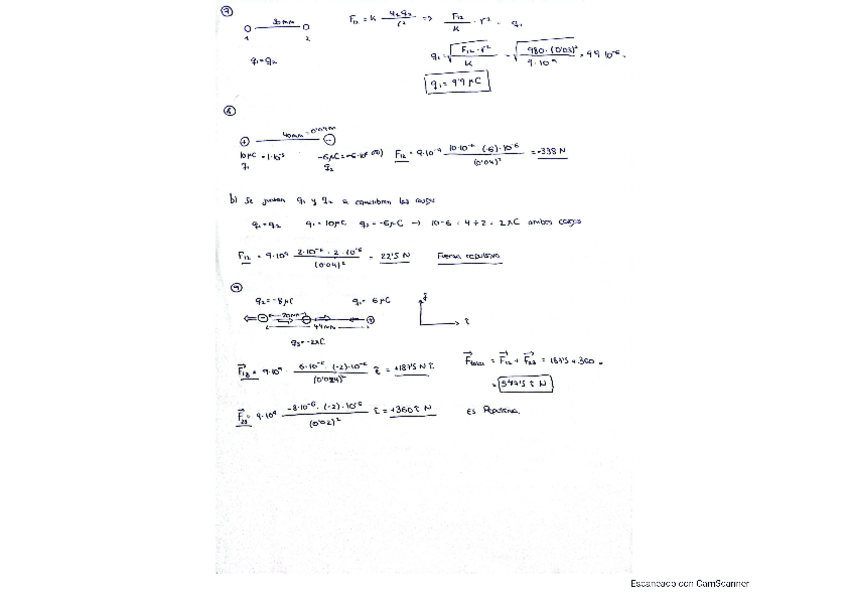 ⑦
30mm
1 2
q₁=q₂
F₁₂ = K q₁q₂/r² => F₁₂/K · r² = q₁
q₁ = √(F₁₂·r²/K) = √(980·(0'03)²/9·10⁹) = 9'9 10⁻⁶
q₁ = 9'9 μC
⑧
40mm = 0'04m
+ −
10μC = 1·10⁻⁵
q₁
−6μC = −6·10⁻⁶
q₂
F₁₂ = 9·10⁹ 10·10⁻⁶ · (−6)·10⁻⁶/(0'04)² = −338 N
b) Se juntan q₁ y q₂
q₁=q₂ q₁ = 10μC q₂ = −6μC → 10-6 = 4 ÷ 2 = 2μC ambas cargas
F₁₂ = 9·10⁹ 2·10⁻⁶ · 2·10⁻⁶/(0'04)² = 22'5 N Fuerza repulsiva
⑨
q₂=−8μC q₁= 6μC
20mm
44mm
q₃=−2μC
F₁₃ = 9·10⁹ · 6·10⁻⁶ · (−2)·10⁻⁶/(0'024)² î = +187'5 N î
F total = F₁₃ + F₂₃ = 187'5 + 360 =
= 547'5 î N
F₂₃ = 9·10⁹ −8·10⁻⁶ · (−2)·10⁻⁶/(0'02)² î = +360 î N
Escaneado con CamScanner